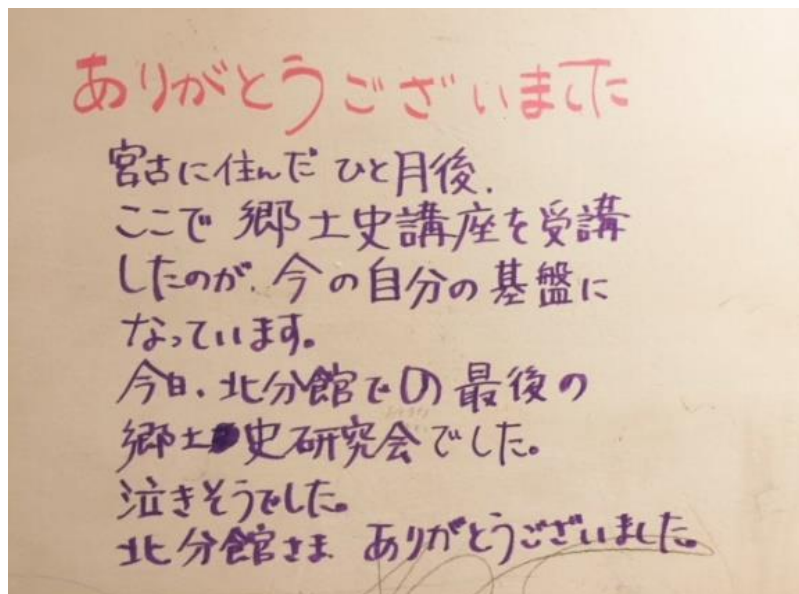 ありがとうございました
宮古に住んだ ひと月後、
ここで 郷土史講座を受講
したのが、今の自分の基盤に
なっています。
今日、北分館での最後の
郷土史研究会でした。
泣きそうでした。
北分館さま ありがとうございました。